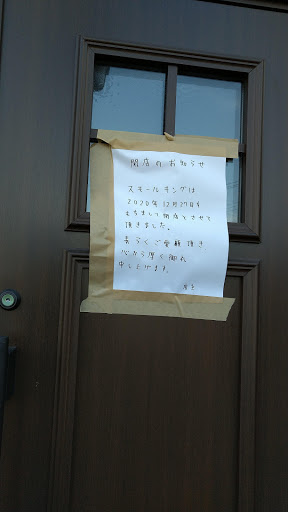 閉店のお知らせ
スモールキングは
2020年12月27日を
もちまして閉店とさせて
頂きました。
長らくご愛顧頂き
心から厚く御礼
申し上げます。
店主